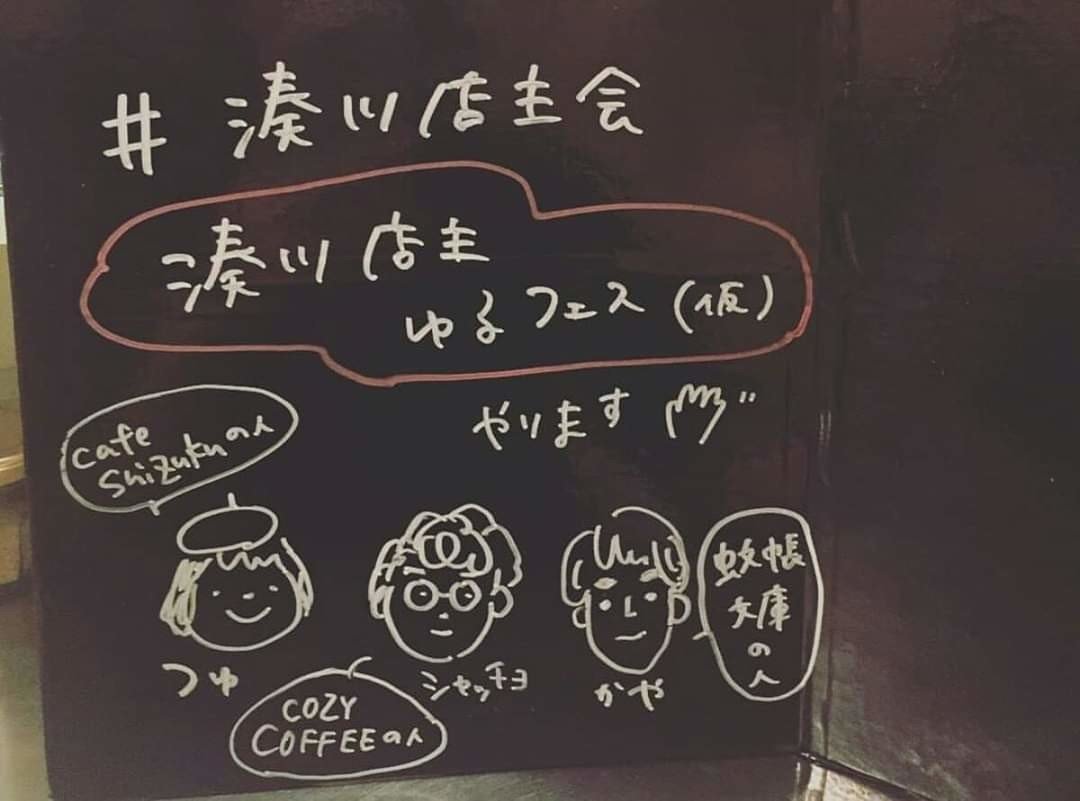 # 湊川店主会
湊川店主
ゆるフェス(仮)
やります
cafe
shizukuの人
つゆ
シャッチョ
かや
COZY
COFFEEの人
蚊帳
兵庫
の
人